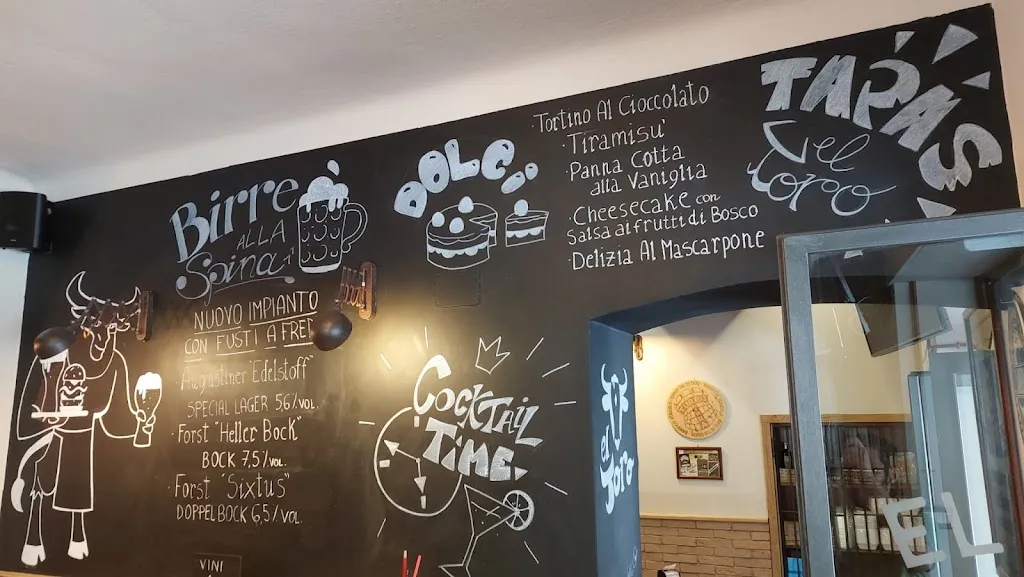 Birre
ALLA
Spina
NUOVO IMPIANTO
CON FUSTI A
Augustiner Edelstoff"
SPECIAL LAGER 5,6%VOL.
· Forst "Heller Bock"
BOCK 7,5%VOL.
· Forst "Sixtus"
DOPPELBOCK 6,5%VOL.
VINI
DOLC...
· Tortino Al Cioccolato
· Tiramisu'
· Panna Cotta
alla Vaniglia
· Cheesecake con
Salsa ai frutti di Bosco
· Delizia Al Mascarpone
COCKTAIL
TIME
TAPAS
el toro
el toro
EL